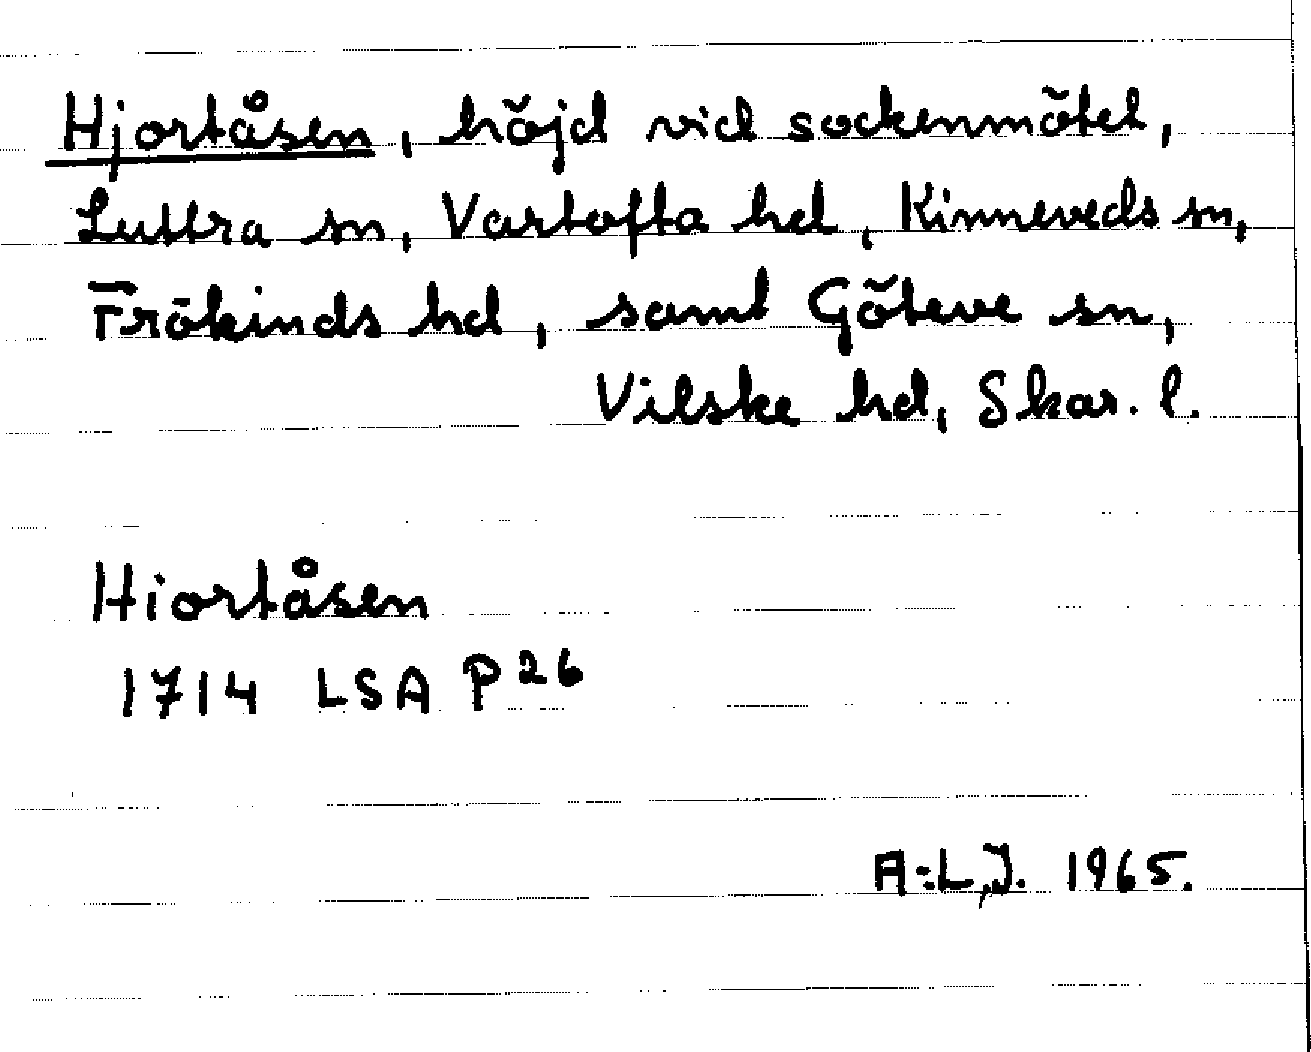 Hjortåsen, höjd vid sockenmötet,
Luttra sn, Vartofta hd, Kinneveds sn,
Frökinds hd, samt Göteve sn,
Vilske hd, Skar. l.
Hiortåsen
1714 LSA P 26
A-L,J. 1965.